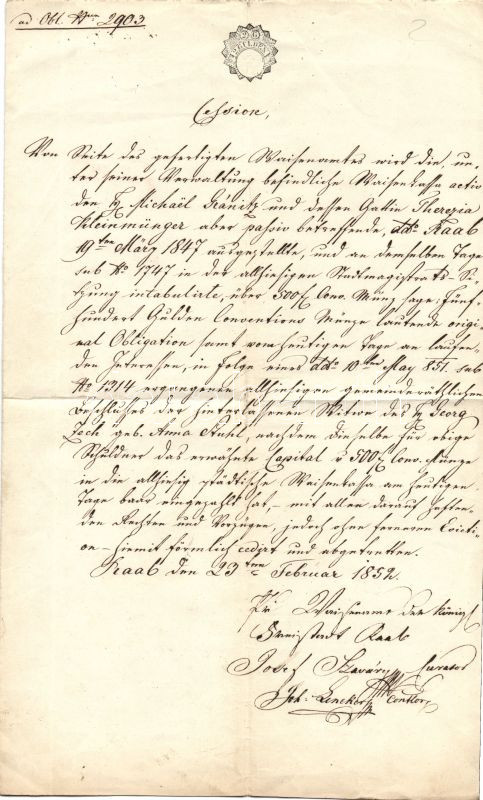 ad Obl. Num 2903
Cession,
Von Seite des gefertigten Waisenamtes wird die, un-
ter seiner Verwaltung befindliche Waisenkassa activ
den H. Michaël Kránitz und dessen Gattin Therezia
Kleinmünger aber passiv betreffende, ddo Raab
19ten März 1847 ausgestellte, und an demselben Tage
sub No 1747 in der allhiesigen Stadtmagistrats-Si-
tzung intabulirte, über 500 f Conv. Münz sage: Fünf-
hundert Gulden Conventions Münze lautende origi-
nal Obligation samt vom heutigen Tage an laufen-
den Interessen, in Folge eines ddo 10ten May 851. sub
No 1314 ergangenen allhiesigen gemeinderäthlichen
Beschlusses der hinterlassenen Witwe des H. Georg
Zech geb. Anna Kuhl, nachdem dieselbe für obige
Schuldner das erwähnte Capital v 500 f Conv. Münze
in die allhiesig städtische Waisenkassa am heutigen
Tage baar eingezahlt hat, – mit allen darauf haften-
den Rechten und Vorzügen, jedoch ohne ferneren Evicti-
on – hiemit förmlich cedirt und abgetretten.
Raab den 23ten Februar 1852.
Waisenamt der königl
Freistadt Raab
Josef Szaváry Curator
Joh. Lenckor Contlor